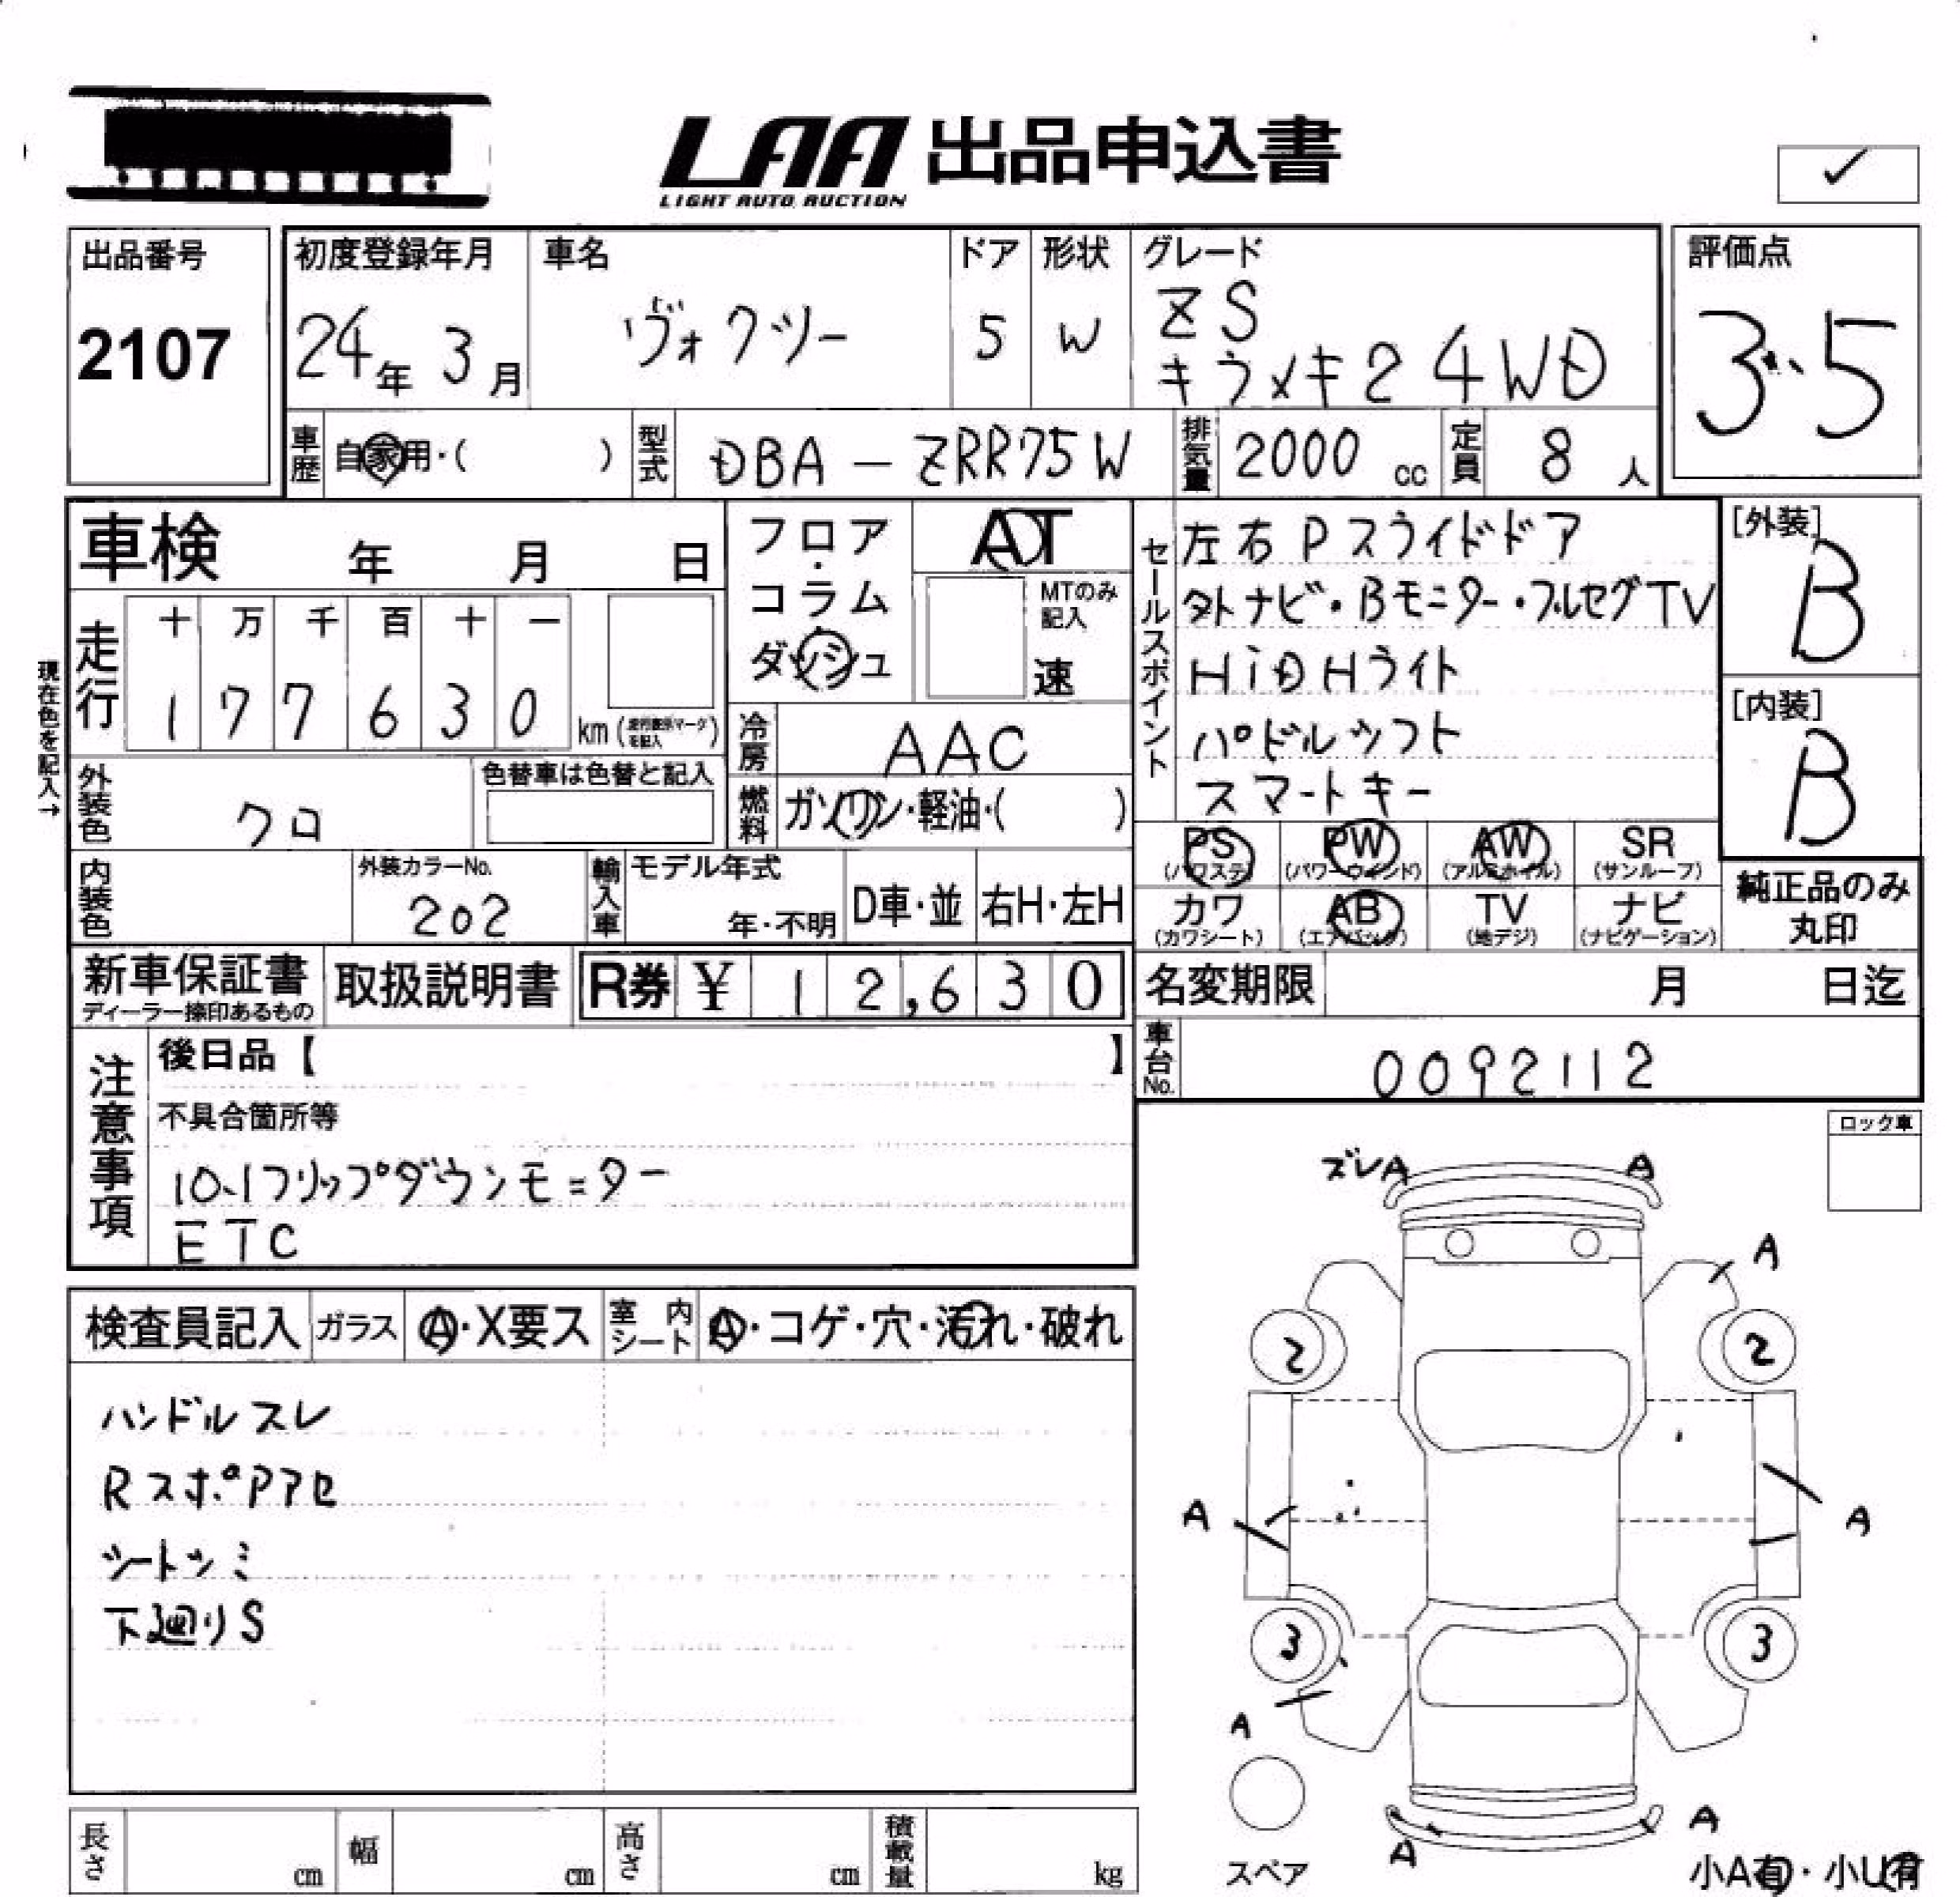 LAA 出品申込書
LIGHT AUTO AUCTION
✓
出品番号
2107
初度登録年月
24年 3月
車名
ヴォクシー
ドア
5
形状
W
グレード
ZS
キラメキ2 4WD
評価点
3.5
車歴
自家用・( )
型式
DBA-ZRR75W
排気量
2000 cc
定員
8 人
車検 年 月 日
走行
十 万 千 百 十 一
1 7 7 6 3 0
km(
を記入
現在色を記入→
外装色
クロ
色替車は色替と記入
内装色
外装カラーNo.
202
フロア
・
コラム
・
ダッシュ
AT
MTのみ
記入
速
冷房
AAC
燃料
ガソリン・軽油・( )
輸入車
モデル年式
年・不明
D車・並
右H・左H
セールスポイント
左右Pスライドドア
外ナビ・Bモニター・フルセグTV
HiDHライト
パドルシフト
スマートキー
[外装]
B
[内装]
B
PS
(パワステ)
PW
(パワーウインド)
AW
(アルミホイル)
SR
(サンルーフ)
カワ
(カワシート)
AB
(エアバック)
TV
(地デジ)
ナビ
(ナビゲーション)
純正品のみ
丸印
新車保証書
ディーラー捺印あるもの
取扱説明書
R券 ¥ 12,630
名変期限 月 日迄
車台No.
0092112
注意事項
後日品【 】
不具合箇所等
10.1フリップダウンモニター
ETC
ロック車
検査員記入
ガラス
A・X要ス
室内
シート
A・コゲ・穴・汚れ・破れ
ハンドルスレ
RスポPアセ
シートシミ
下廻りS
ズレA
A
A
2
2
A
A
3
3
A
A
A
スペア
小A有・小U有
長さ
cm
幅
cm
高さ
cm
積載量
kg